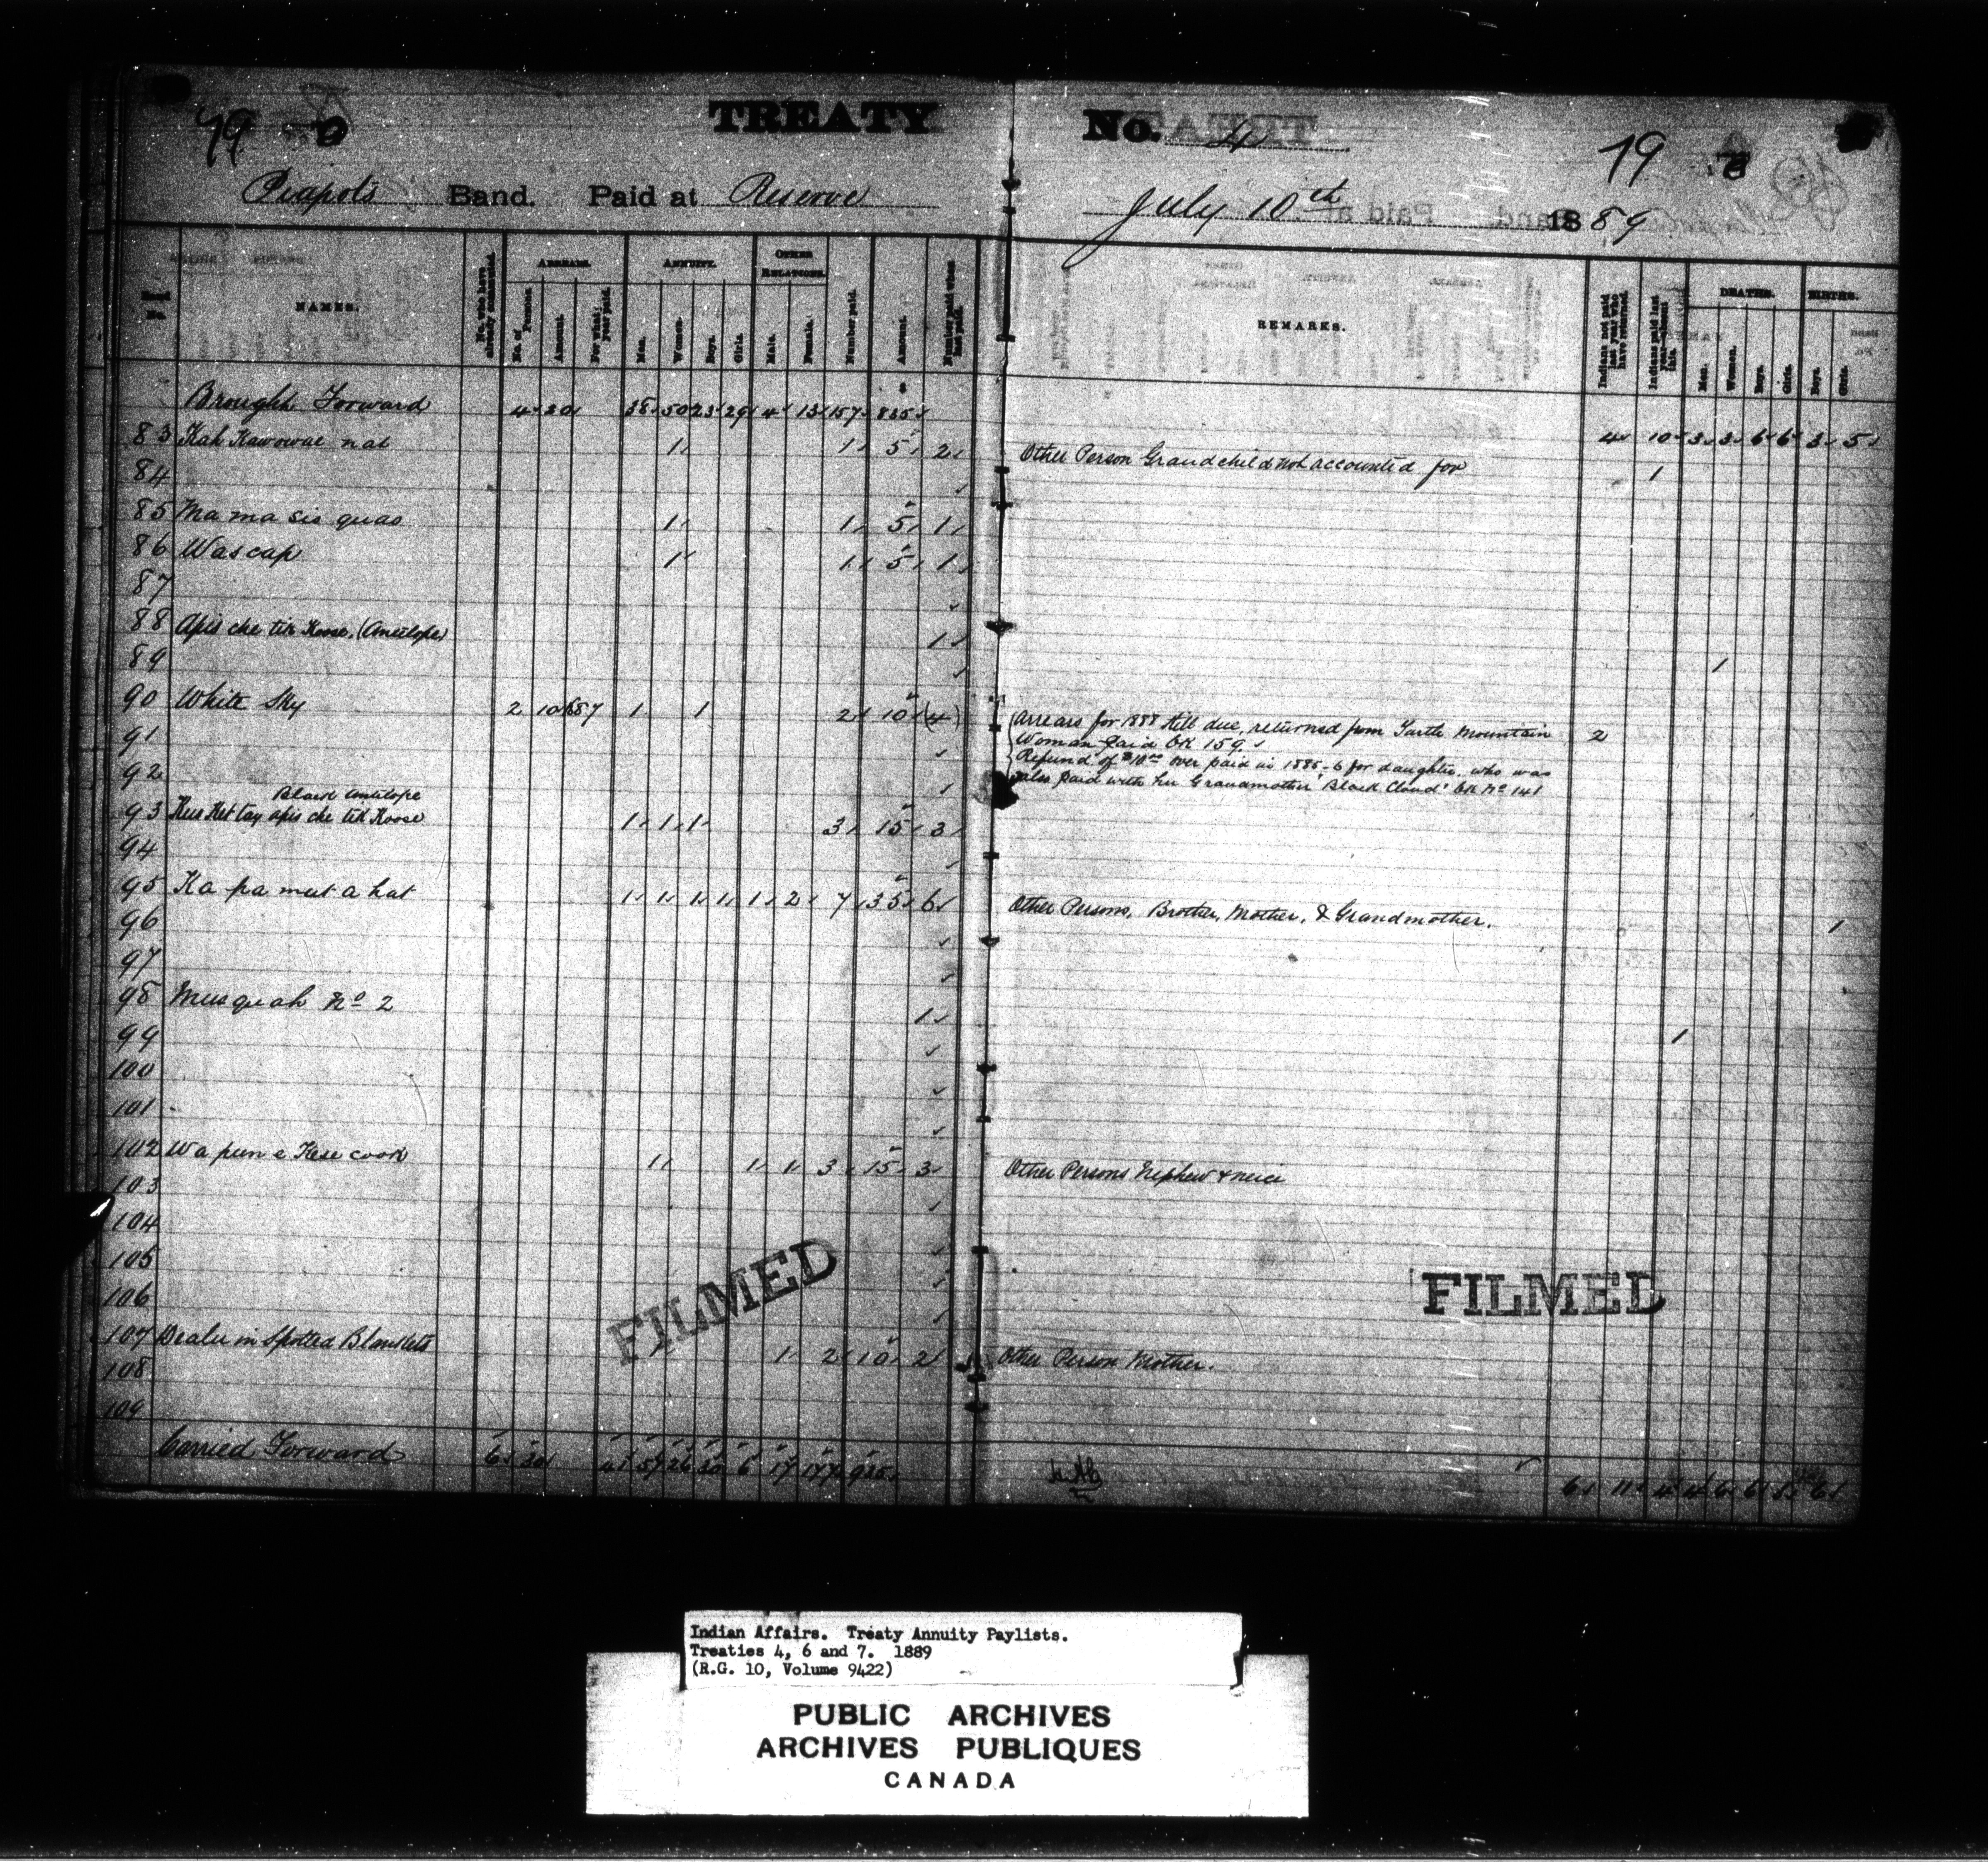 79
TREATY No. 4
79
Piapots Band. Paid at Reserve July 10th 1889
NAMES.
No. who have already commuted.
ARREARS.
No. of Persons.
Amount.
For what year paid.
ANNUITY.
Men.
Women.
Boys.
Girls.
OTHER RELATIONS.
Male.
Female.
Number paid.
Amount.
Number paid when last paid.
REMARKS.
Indians not paid last year who have returned.
Indians paid last year—absent this.
DEATHS.
Men.
Women.
Boys.
Girls.
BIRTHS.
Boys.
Girls.
Brought Forward 4 20 38 50 23 29 4 13 157 835 4 10 3 3 6 6 3 5
83 Kah Kawowae nat 1 1 5 2 Other Person Grandchild not accounted for 1
84
85 Ma ma sis quao 1 1 5 1
86 Wascap 1 1 5 1
87
88 Apis che tik Koose, (Antelope) 1 1
89
90 White Sky 2 10 1887 1 1 2 10 (4) Arrears for 1888 still due, returned from Turtle Mountain 2
91 Woman paid tk 159.
92 Refund of $10.00 over paid in 1885-6 for daughter, who was
also paid with her Grandmother "Black Cloud" tk No 141
Black Antelope
93 Kus Ket tay apis che tik Koose 1 1 1 3 15 3
94
95 Ka pa mut a hat 1 1 1 1 1 2 7 35 6 Other Persons, Brother, Mother, & Grandmother. 1
96
97
98 Musquah No 2 1 1
99
100
101
102 Wa pun e Kese cook 1 1 1 3 15 3 Other Persons Nephew & neice
103
104
105
106
107 Dealer in Spotted Blankets 1 2 10 2 Other Person Mother.
108
109
Carried Forward 6 30 41 57 26 30 6 17 177 935 6 11 4 4 6 6 3 6
FILMED
FILMED
Indian Affairs. Treaty Annuity Paylists.
Treaties 4, 6 and 7. 1889
(R.G. 10, Volume 9422)
PUBLIC ARCHIVES
ARCHIVES PUBLIQUES
CANADA